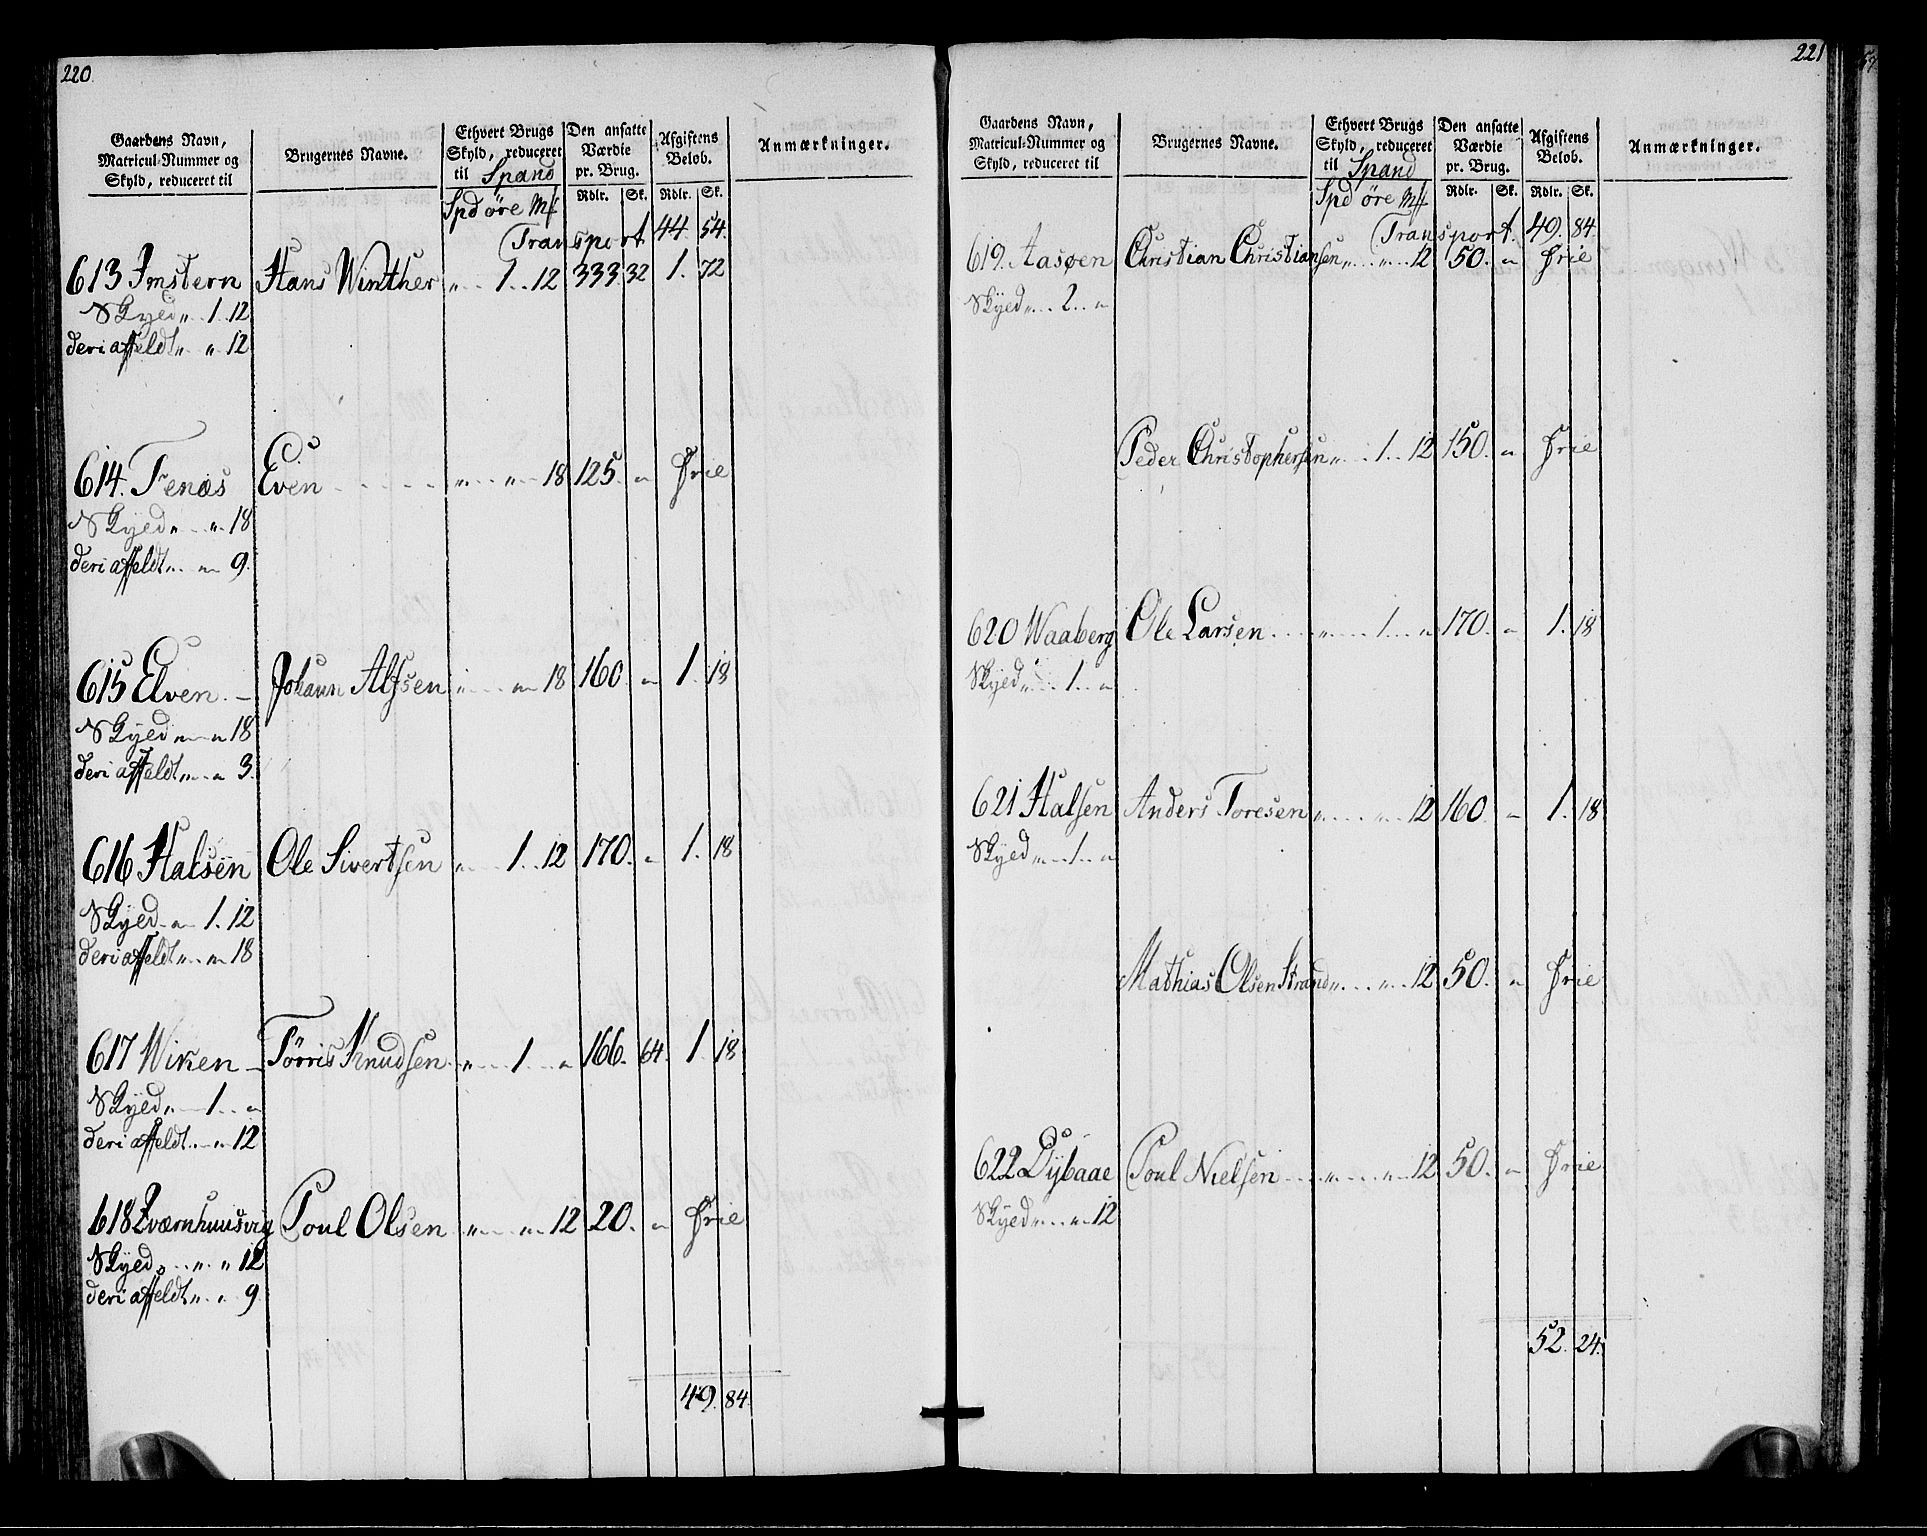 220.
Gaardens Navn, Matricul-Nummer og Skyld, reduceret til
Brugernes Navne.
Ethvert Brugs Skyld, reduceret til Spand
Den ansatte Værdie pr. Brug.
Afgiftens Beløb.
Anmærkninger.
Spd øre Mk
Rdlr. Sk. Rdlr. Sk.
Transport 44. 54.
613 Imstern Hans Winther „ .. 1 .. 12 333. 32 1. 72
Skyed „ . 1 . 12
deri affeldt „ „ 12
614. Fenæs Even . . . . „ .. „ .. 18 125. „ Frie
Skyed „ .. „ . 18
deri affeldt „ . „ 9.
615 Elven. – Johann Alfsen „ .. „ 18 160. „ 1. 18
Skyed „ „ 18
deri affeldt „ . „ 3.
616 Halsen Ole Sivertsen „ .. 1 .. 12 170. „ 1. 18
Skyed „ 1. 12
deri affeldt „ . „ 18
617 Wiken – Tørris Knudsen „ .. 1 .. „ 166. 64. 1. 18
Skyed „ 1 .. „
deri affeldt . „ 12
618 Zværnhuusvig Poul Olsen „ .. „ 12 20. „ Frie
Skyed „ .. „ . „ 12
deri affeldt „ . „ 9
49. 84.
221
Gaardens Navn, Matricul-Nummer og Skyld, reduceret til
Brugernes Navne.
Ethvert Brugs Skyld, reduceret til Spand
Den ansatte Værdie pr. Brug.
Afgiftens Beløb.
Anmærkninger.
Spd øre Mk
Rdlr. Sk. Rdlr. Sk.
Transport. 49. 84.
619. Aasøen Christian Christiansen „ .. „ .. 12 50. „ Frie
Skyed „ .. 2 .. „
Peder Christophersen „ .. 1 .. 12 150. „ Frie
620 Waaberg Ole Larsen .. „ .. 1 .. „ 170. „ 1. 18
Skyed „ .. 1 .. „
621 Halsen Anders Toresen „ .. „ . 12 160. „ 1. 18
Skyed „ .. 1 .. „
Mathias Olsen Strand „ .. „ . 12 50. „ Frie
622 Dybaae Poul Nielsen .. „ .. „ 12 50. „ Frie
Skyed „ .. „ 12
52. 24.